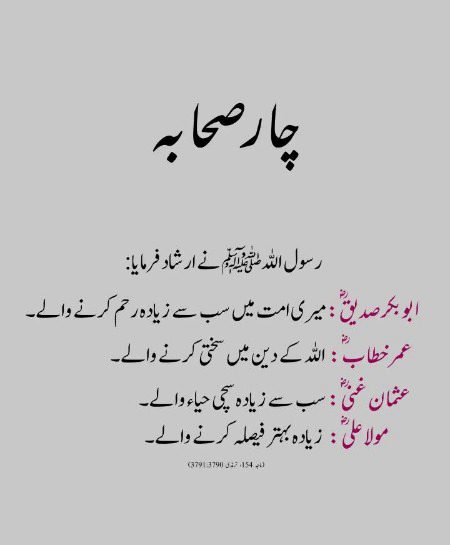 چار صحابہ
رسول اللہ ﷺ نے ارشاد فرمایا:
ابوبکر صدیقؓ : میری امت میں سب سے زیادہ رحم کرنے والے۔
عمر خطابؓ : اللہ کے دین میں سختی کرنے والے۔
عثمان غنیؓ : سب سے زیادہ سچی حیاء والے۔
مولا علیؓ : زیادہ بہتر فیصلہ کرنے والے۔
(ماجہ 154، ترمذی 3790,3791)